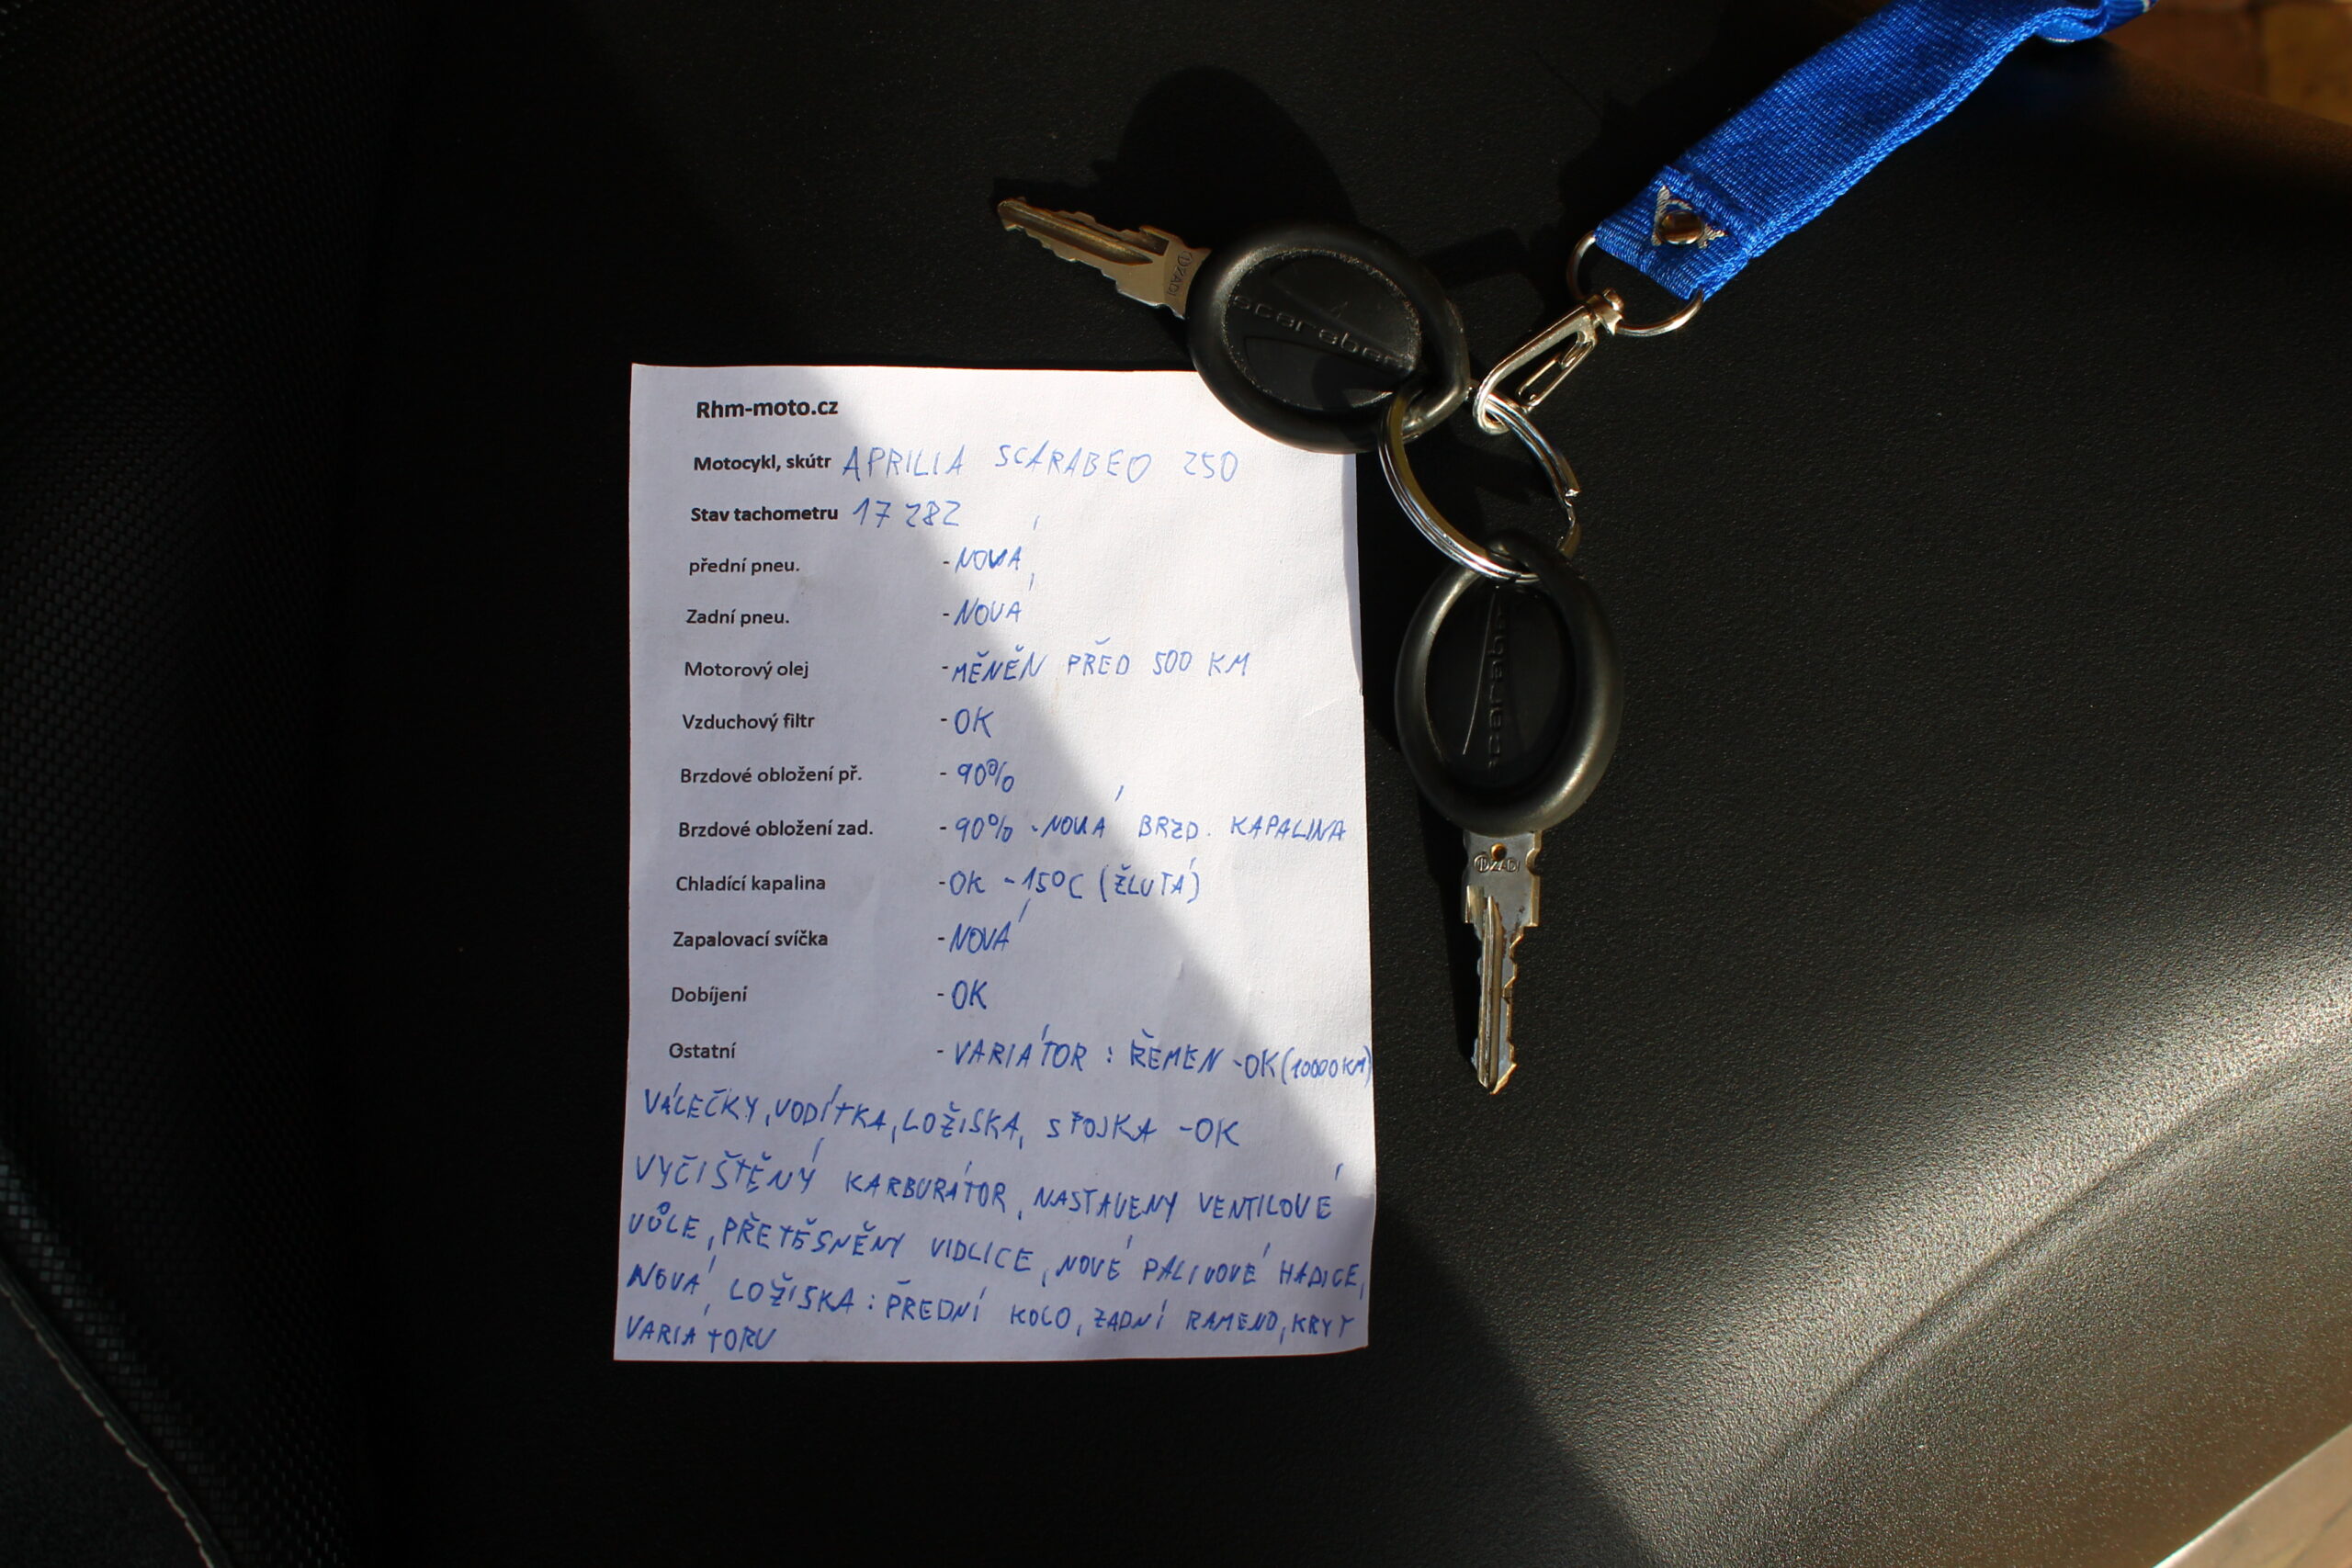 Rhm-moto.cz
Motocykl, skútr APRILIA SCARABEO 250
Stav tachometru 17 282
přední pneu. - NOVÁ
Zadní pneu. - NOVÁ
Motorový olej - MĚNĚN PŘED 500 KM
Vzduchový filtr - OK
Brzdové obložení př. - 90%
Brzdové obložení zad. - 90% - NOVÁ BRZD. KAPALINA
Chladící kapalina - OK - 15°C (ŽLUTÁ)
Zapalovací svíčka - NOVÁ
Dobíjení - OK
Ostatní - VARIÁTOR : ŘEMEN - OK (10000 KM)
VÁLEČKY, VODÍTKA, LOŽISKA, SPOJKA - OK
VYČIŠTĚNÝ KARBURÁTOR, NASTAVENY VENTILOVÉ
VŮLE, PŘETĚSNĚNY VIDLICE, NOVÉ PALIVOVÉ HADICE,
NOVÁ LOŽISKA : PŘEDNÍ KOLO, ZADNÍ RAMENO, KRYT
VARIÁTORU
scarabeo
scarabeo
ZADI
ZADI